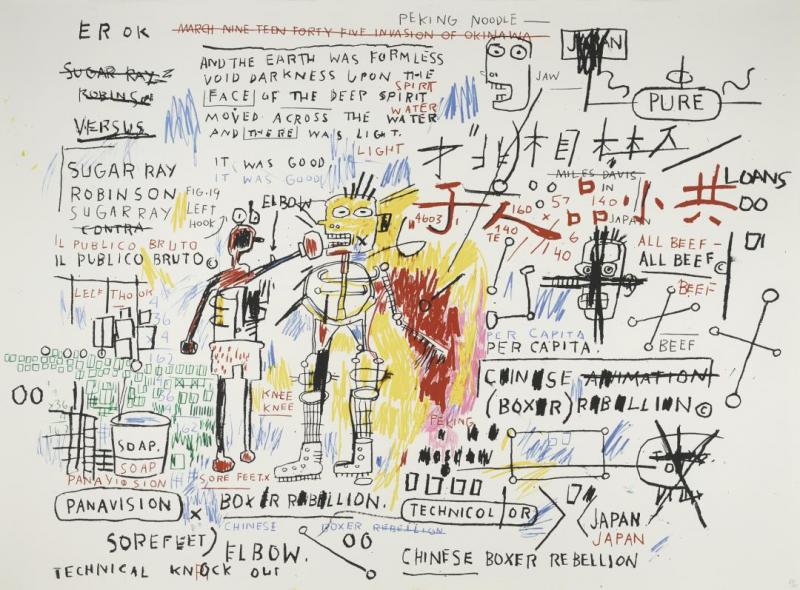 PEKING NOODLE
EROK
MARCH NINE TEEN FORTY FIVE INVASION OF OKINAWA
JAPAN
SUGAR RAY
ROBINSON
VERSUS
AND THE EARTH WAS FORMLESS
VOID DARKNESS UPON THE
SPIRIT
FACE OF THE DEEP SPIRIT
WATER
MOVED ACROSS THE WATER
AND THERE WAS LIGHT.
LIGHT
JAW
PURE
IT WAS GOOD
IT WAS GOOD
SUGAR RAY
ROBINSON
SUGAR RAY
CONTRA
IL PUBLICO BRUTO
IL PUBLICO BRUTO©
FIG.19
LEFT
HOOK
ELBOW
MILES DAVIS
IN
JAPAN
LOANS
00
4603
于人品小共
160
x
140
TE
57
140
6
40
ALL BEEF -
ALL BEEF©
BEEF
BEEF
LEFT HOOK
4
36
4
162
PER CAPITA
PER CAPITA.
00
CHINESE ANIMATION
(BOXER) REBELLION©
KNEE
KNEE
PEKING
MOSCOW
SOAP.
SOAP
PANAVISION
SORE FEET.X
PANAVISION
x
BOXER REBELLION.
TECHNICOLOR
CHINESE BOXER REBELLION
JAPAN
JAPAN
SOREFEET)
ELBOW.
00
TECHNICAL KNOCK OUT
CHINESE BOXER REBELLION